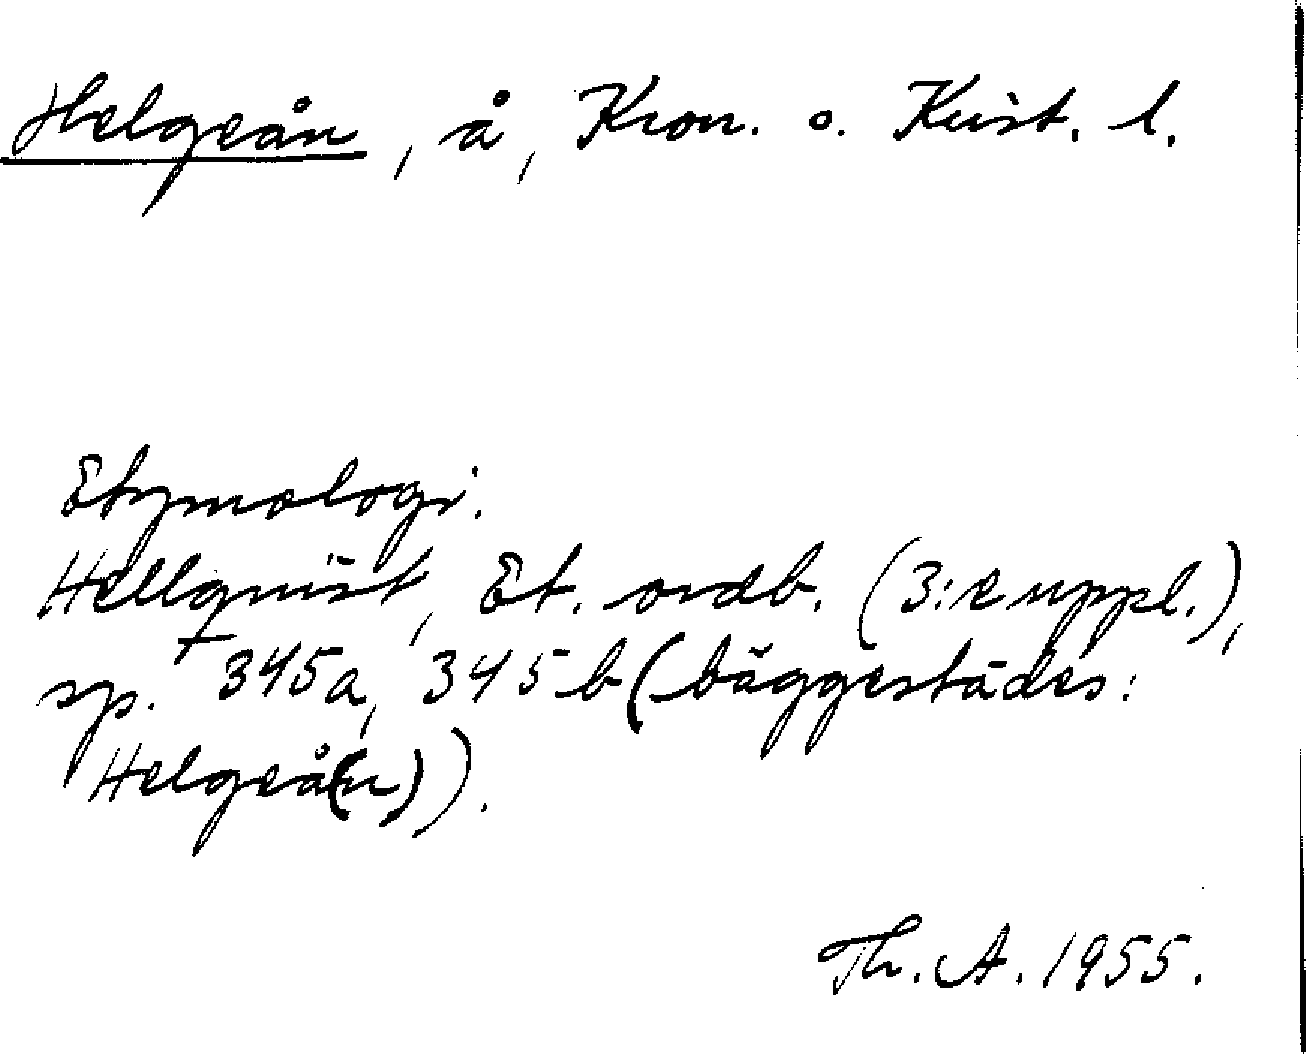 Helgeån, å, Kron. o. Krist. l.
Etymologi.
Hellquist, Et. ordb. (3:e uppl.),
sp. 345a, 345b (bäggestädes:
Helgeå(n)).
Th. A. 1955.